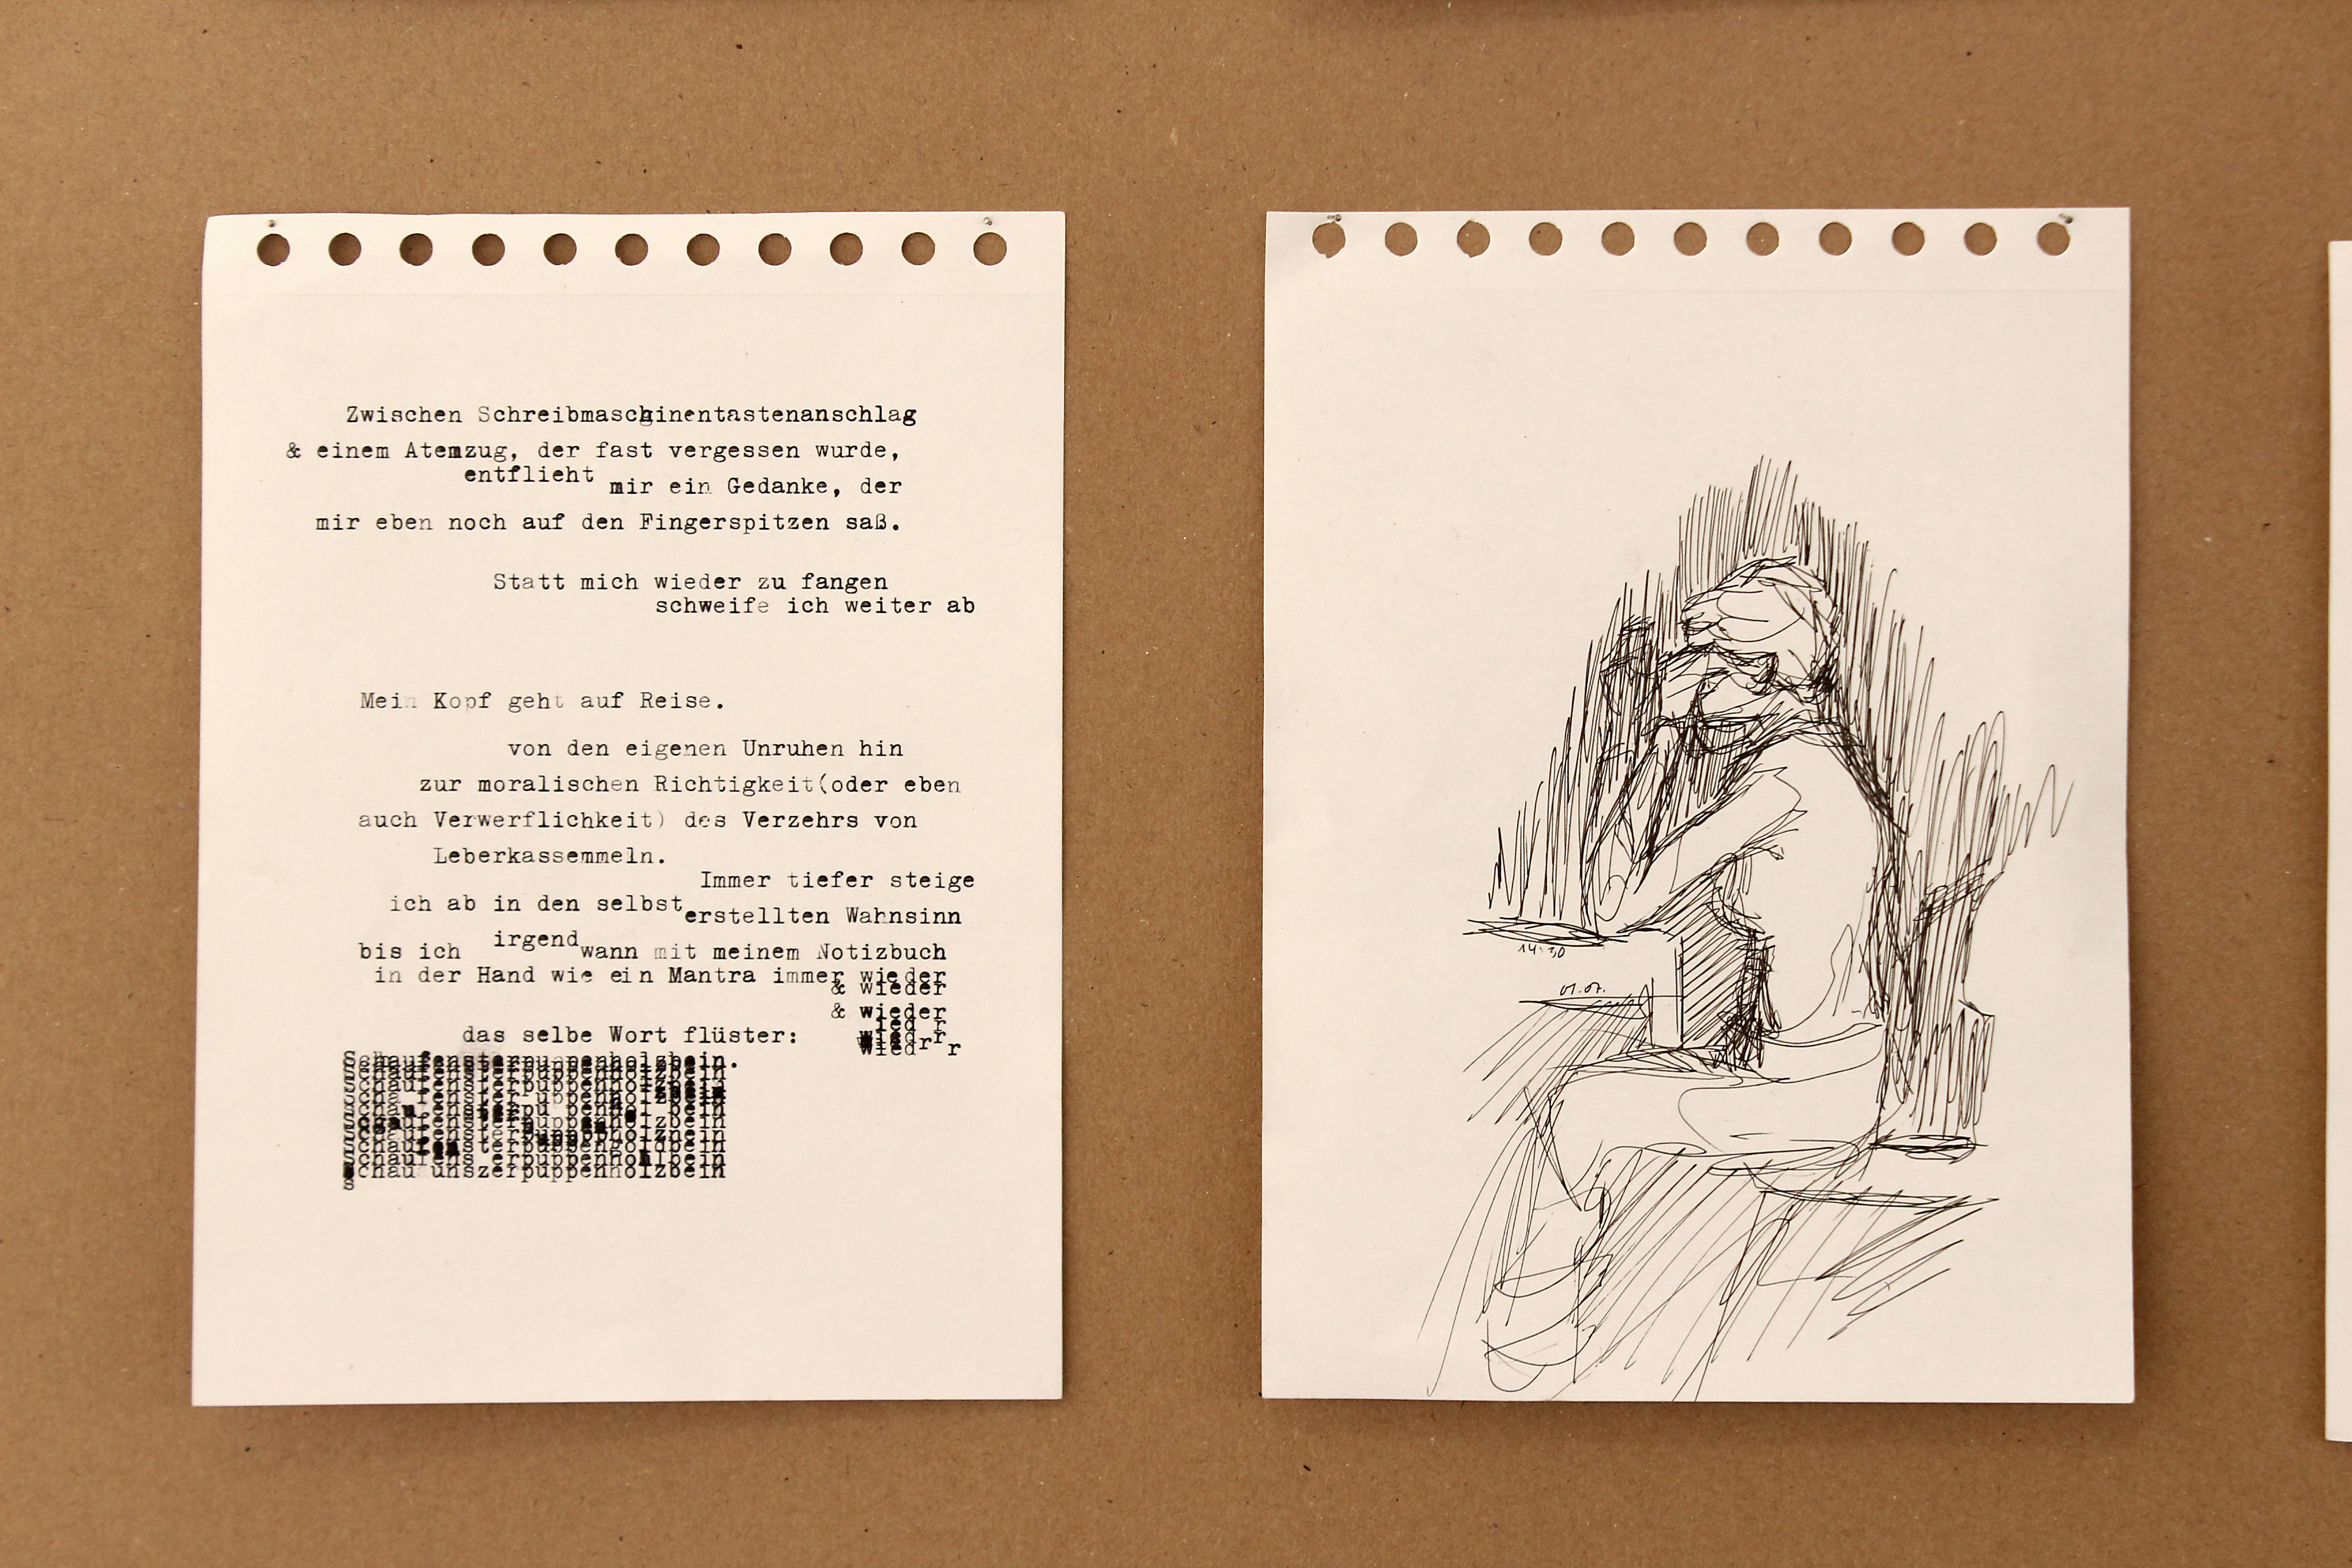 Zwischen Schreibmaschinentastenanschlag
& einem Atemzug, der fast vergessen wurde,
entflieht mir ein Gedanke, der
mir eben noch auf den Fingerspitzen saß.
Statt mich wieder zu fangen
schweife ich weiter ab
Mein Kopf geht auf Reise.
von den eigenen Unruhen hin
zur moralischen Richtigkeit(oder eben
auch Verwerflichkeit) des Verzehrs von
Leberkassemmeln.
Immer tiefer steige
ich ab in den selbst erstellten Wahnsinn
bis ich irgendwann mit meinem Notizbuch
in der Hand wie ein Mantra immer wieder
& wieder
& wieder
das selbe Wort flüster:
Schaufensterpuppenholzbein.
Schaufensterpuppenholzbein
14:30
01.07.